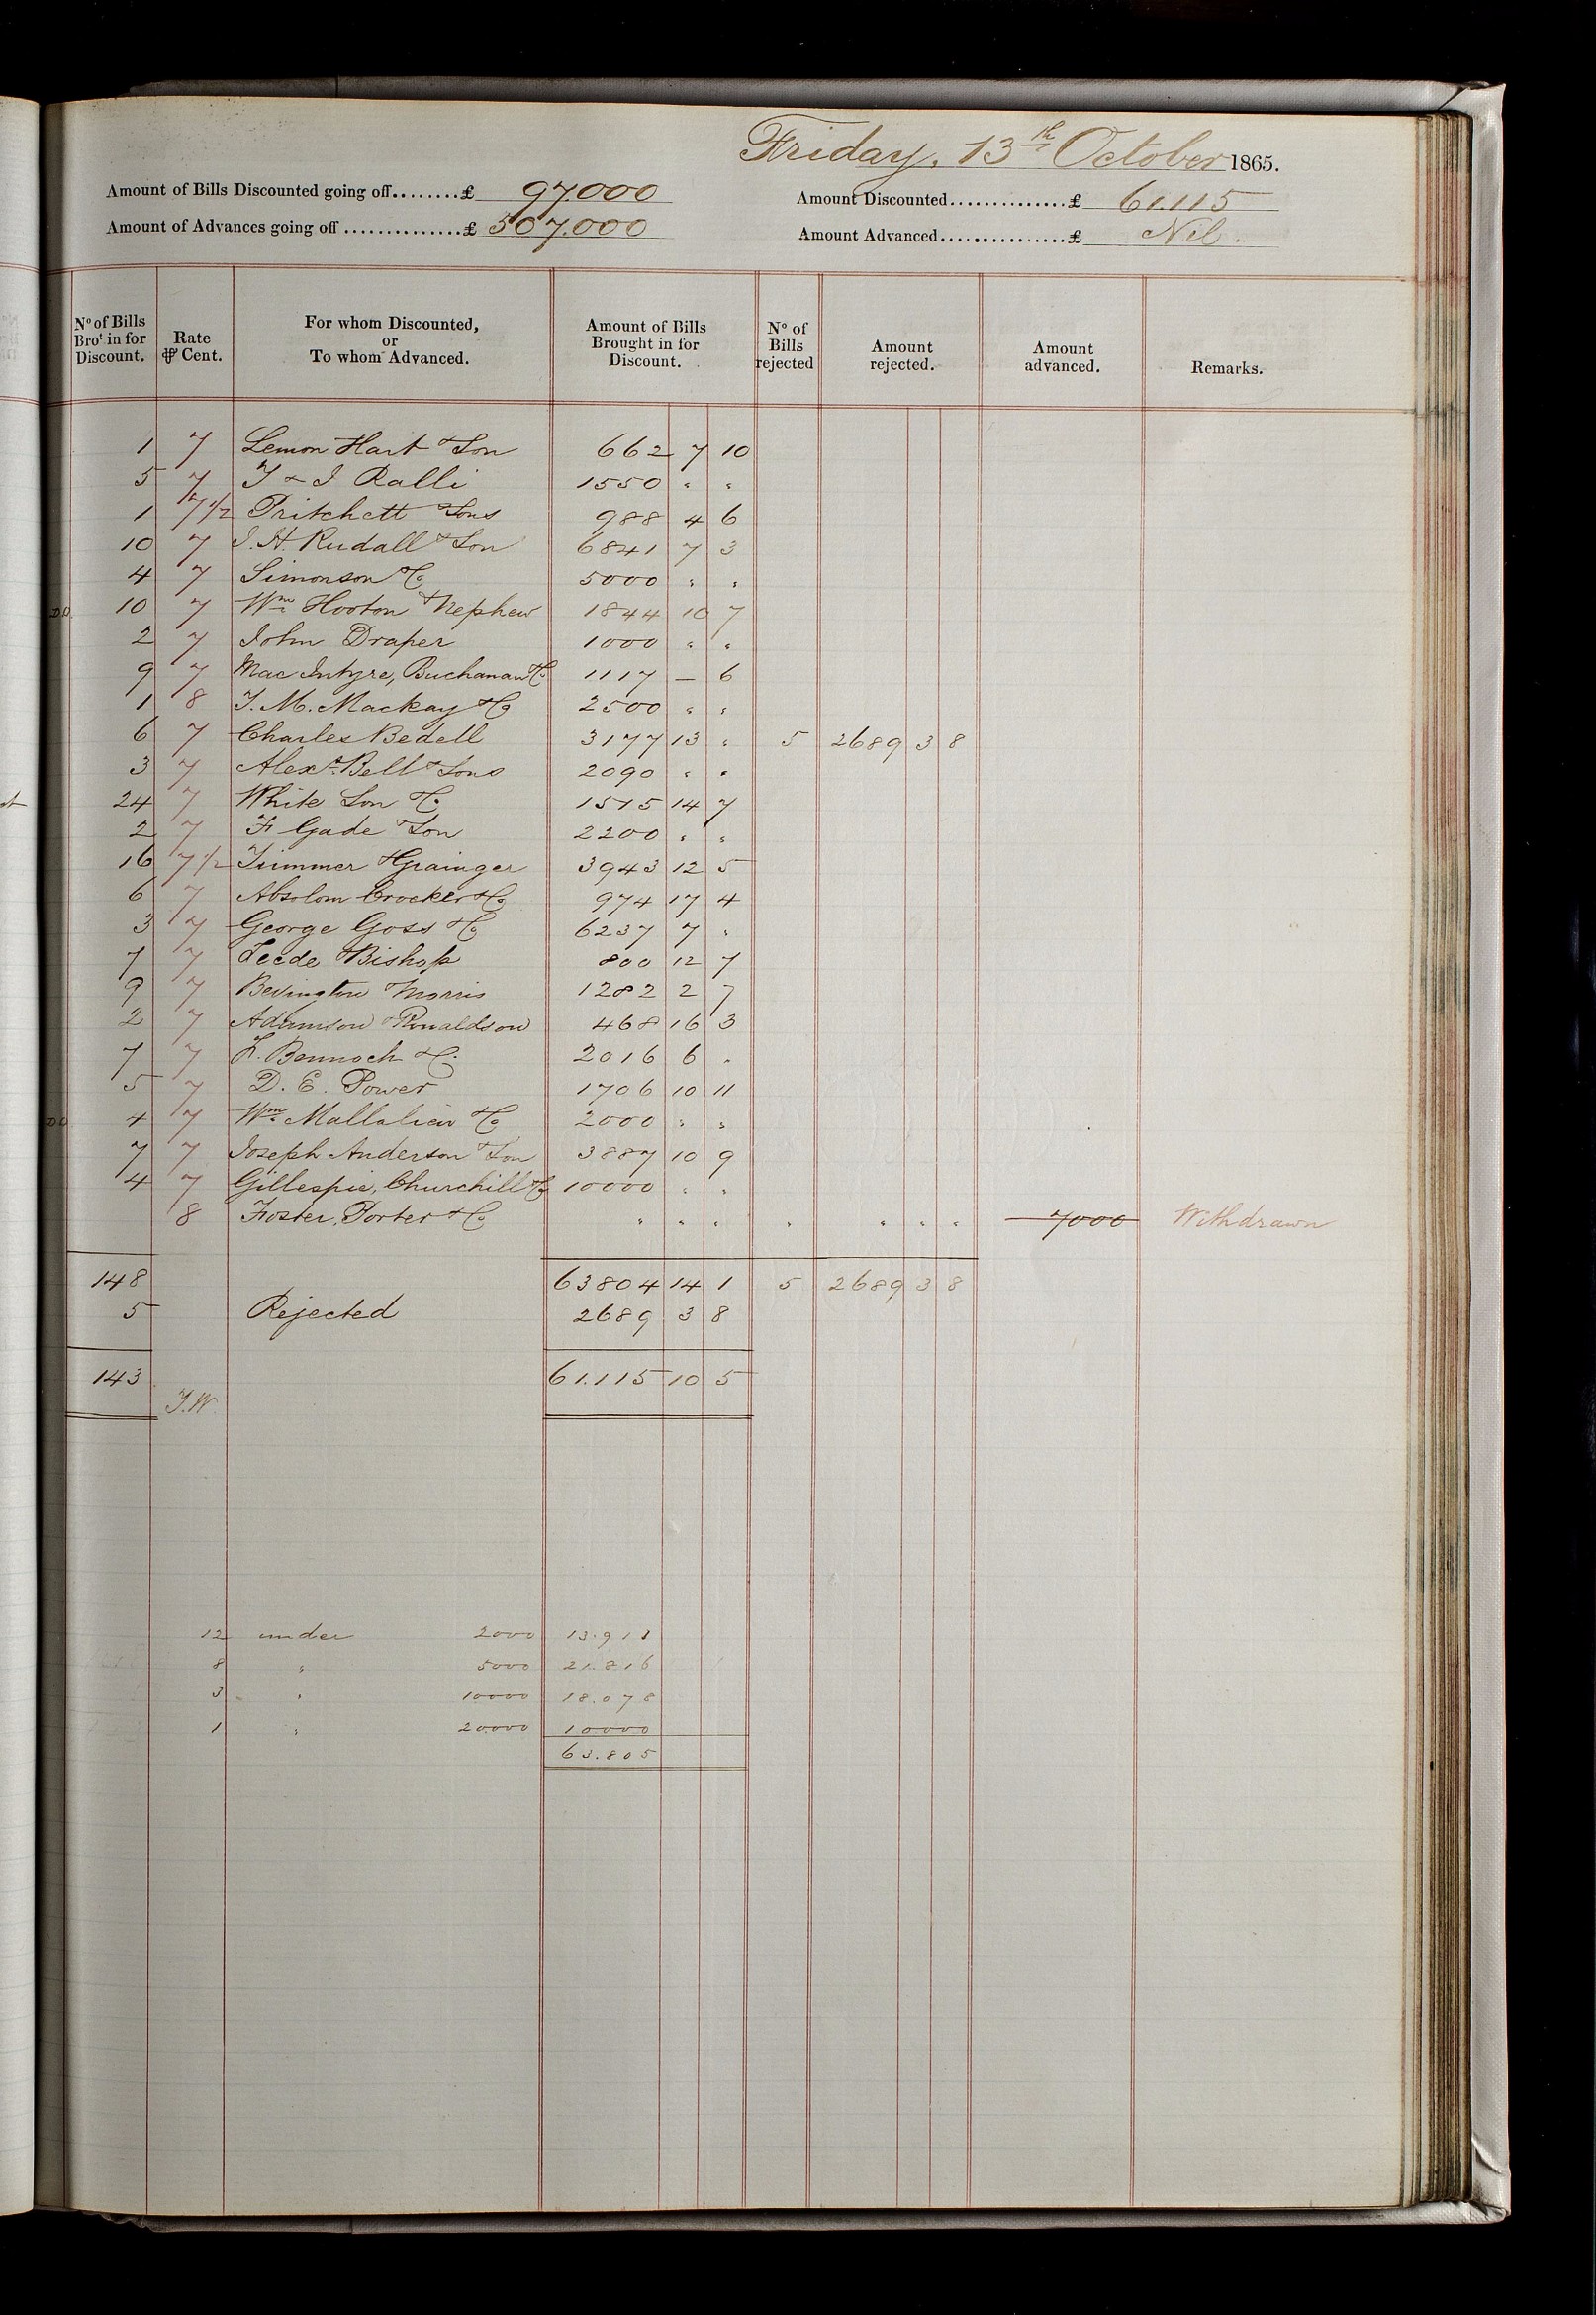 Friday, 13th October 1865.
Amount of Bills Discounted going off........£ 97.000
Amount Discounted..............£ 61.115
Amount of Advances going off..............£ 507.000
Amount Advanced...............£ Nil
No of Bills Brot in for Discount. Rate ⅌ Cent. For whom Discounted, or To whom Advanced. Amount of Bills Brought in for Discount. No of Bills rejected Amount rejected. Amount advanced. Remarks.
1 7 Lemon Hart & Son 662 7 10
5 7 T & J Ralli 1550 " "
1 7 1/2 Pritchett & Sons 988 4 6
10 7 J. H. Rudall & Son 6841 7 3
4 7 Simonson & Co 5000 " "
DD 10 7 Wm Hooton & Nephew 1844 10 7
2 7 John Draper 1000 " "
9 7 Mac Intyre, Buchanan & Co 1117 — 6
1 8 T. M. Mackay & Co 2500 " "
6 7 Charles Bedell 3177 13 " 5 2689 3 8
3 7 Alexr Bell & Sons 2090 " "
24 7 White Son & Co 1515 14 7
2 7 F Gade & Son 2200 " "
16 7 1/2 Trimmer & Grainger 3943 12 5
6 7 Absolom Crocker & Co 974 17 4
3 7 George Goss & Co 6237 7 "
7 7 Leede & Bishop 800 12 7
9 7 Bevington & Morris 1282 2 7
2 7 Adamson & Ronaldson 468 16 3
7 7 F. Bennoch & Co 2016 6 "
5 7 D. E. Power 1706 10 11
DD 4 7 Wm Mallalieu & Co 2000 " "
7 7 Joseph Anderson & Son 3887 10 9
4 7 Gillespie, Churchill & Co 10000 " "
8 Foster, Porter & Co " " " " " " " 7000 Withdrawn
148 63804 14 1 5 2689 3 8
5 Rejected 2689 3 8
143 61.115 10 5
T.W.
12 under 2000 13.911
8 " 5000 21.816
3 " 10000 18.078
1 " 20000 10000
63.805